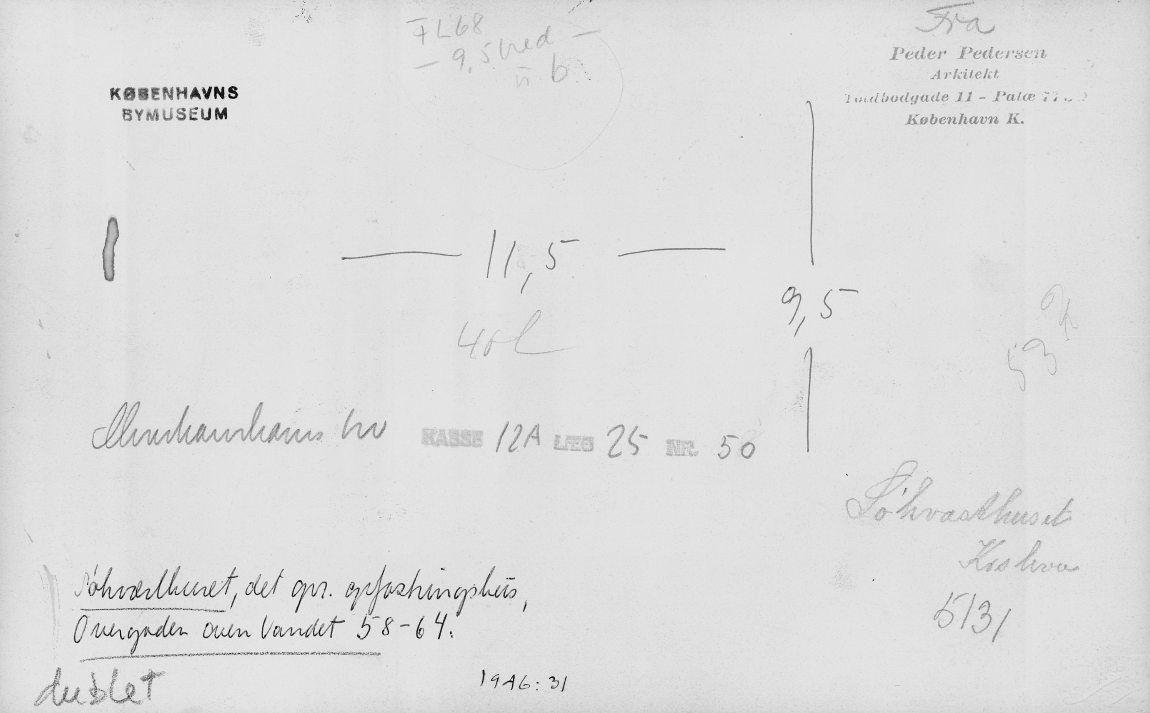 FL68
— 9,5 bred —
ü b
Fra
Peder Pedersen
Arkitekt
Toldbodgade 11 – Palæ
København K.
KØBENHAVNS
BYMUSEUM
11,5
9,5
53
KASSE 12A LÆG 25 NR. 50
Søkvæsthuset
5131
Søkvæsthuset, det opr. opfostringshus,
Overgaden oven Vandet 58-64.
dublet
1946:31